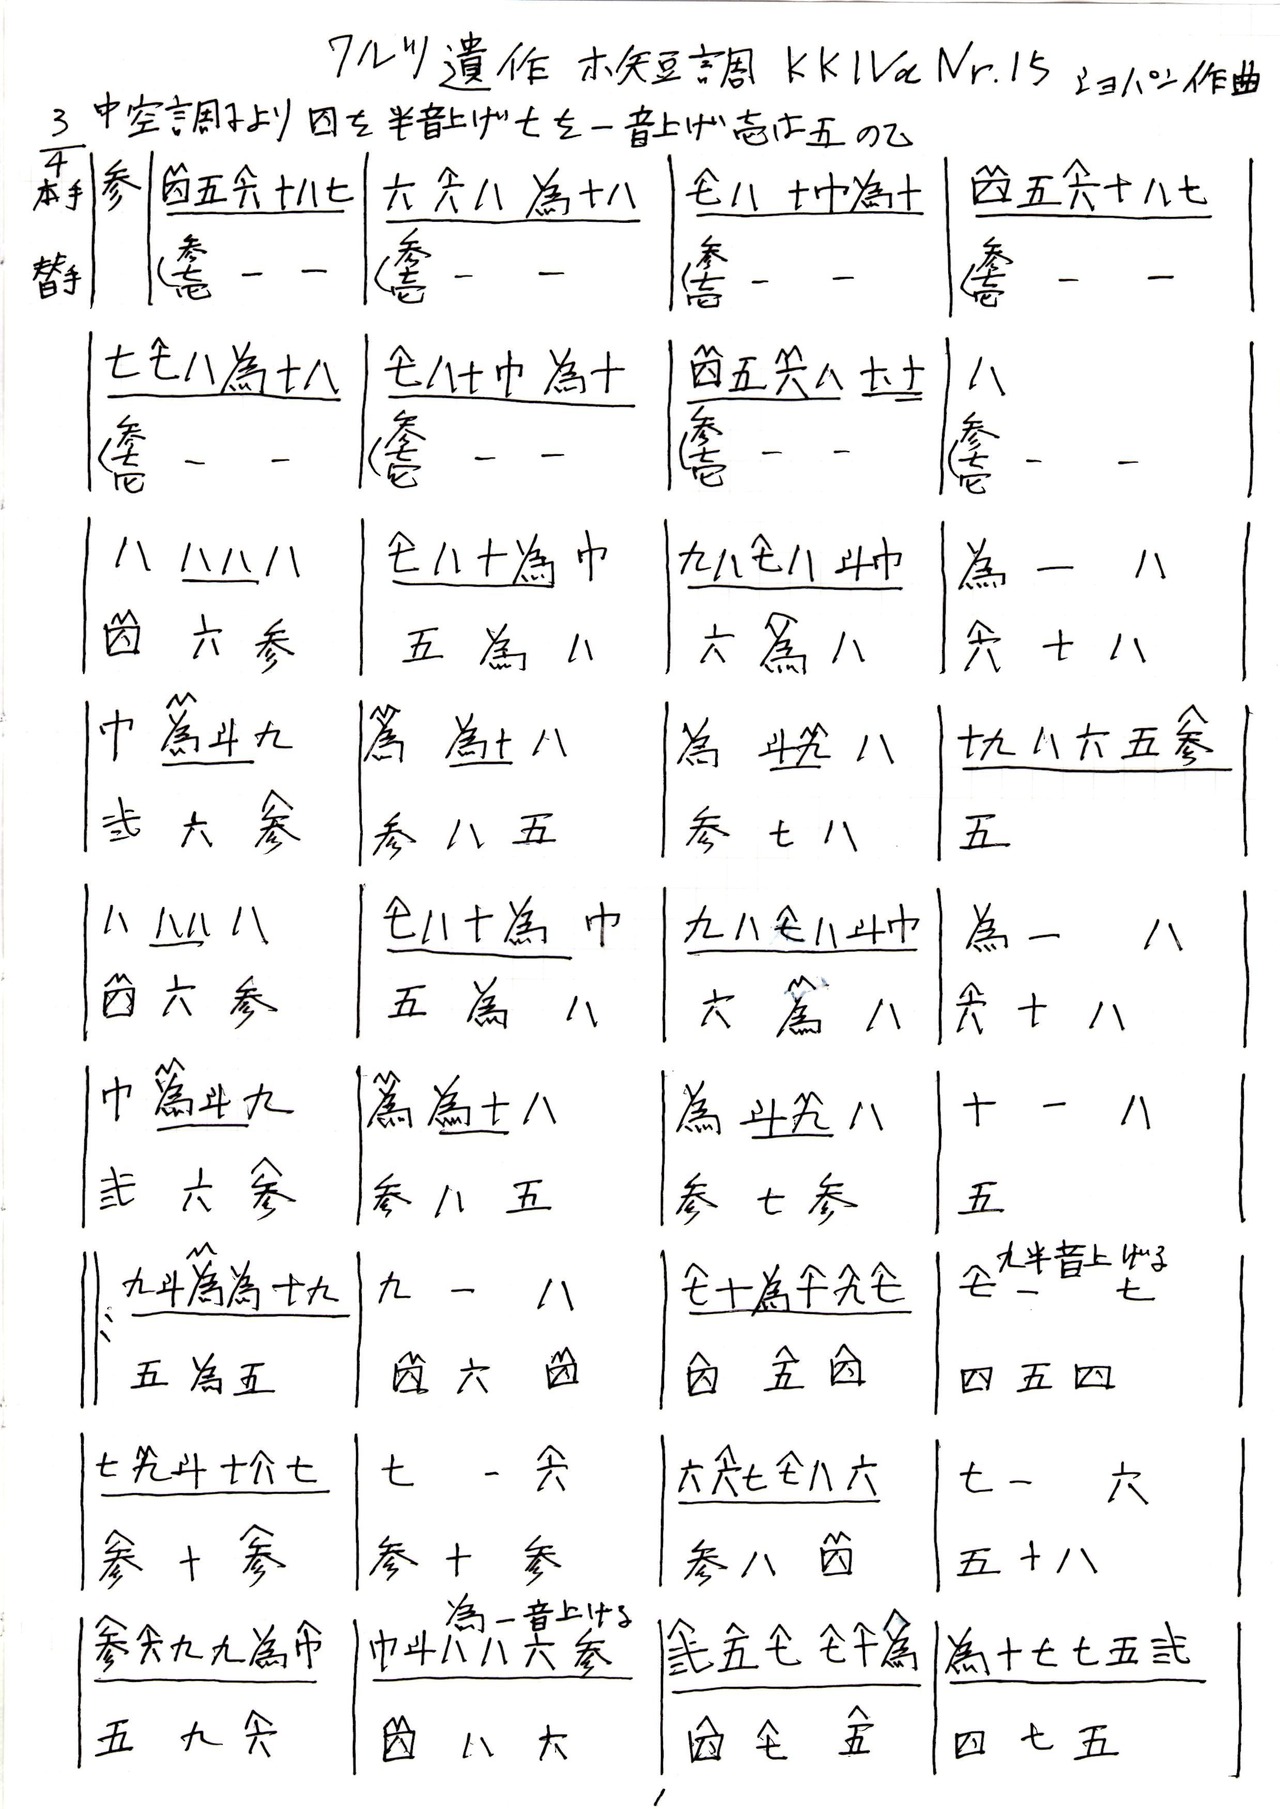 ワルツ 遺作 ホ短調 KKIVa Nr.15 ショパン作曲
3/4 中空調子より 四を半音上げ 七を一音上げ 壱は五の乙
本手 参 四五六十八七 六六八為十八 七八十巾為十 四五六十八七
替手 参七壱 ー ー 参七壱 ー ー 参七壱 ー ー 参七壱 ー ー
七七八為十八 七八十巾為十 四五六八七十 八
参七壱 ー ー 参七壱 ー ー 参七壱 ー ー 参七壱 ー ー
八 八八八 七八十為巾 九八七八斗巾 為 ー 八
四 六 参 五 為 八 六 為 八 六 十 八
巾 為斗九 為 為十八 為 斗九 八 十九八六五参
弐 六 参 参 八 五 参 七 八 五
八 八八 八 七八十為 巾 九八七八斗巾 為 ー 八
四 六 参 五 為 八 六 為 八 六 十 八
巾 為斗九 為 為十八 為 斗九 八 十 ー 八
弐 六 参 参 八 五 参 七 参 五
九半音上げる
九斗為為十九 九 ー 八 七十為十九七 七 ー 七
五 為 五 四 六 四 四 五 四 四 五 四
七九斗十八七 七 ー 六 六六七七八六 七 ー 六
参 十 参 参 十 参 参 八 四 五 十 八
為一音上げる
参六九九為巾 巾斗八八六参 弐五七七十為 為十七七五弐
五 九 六 四 八 六 四 七 五 四 七 五
1